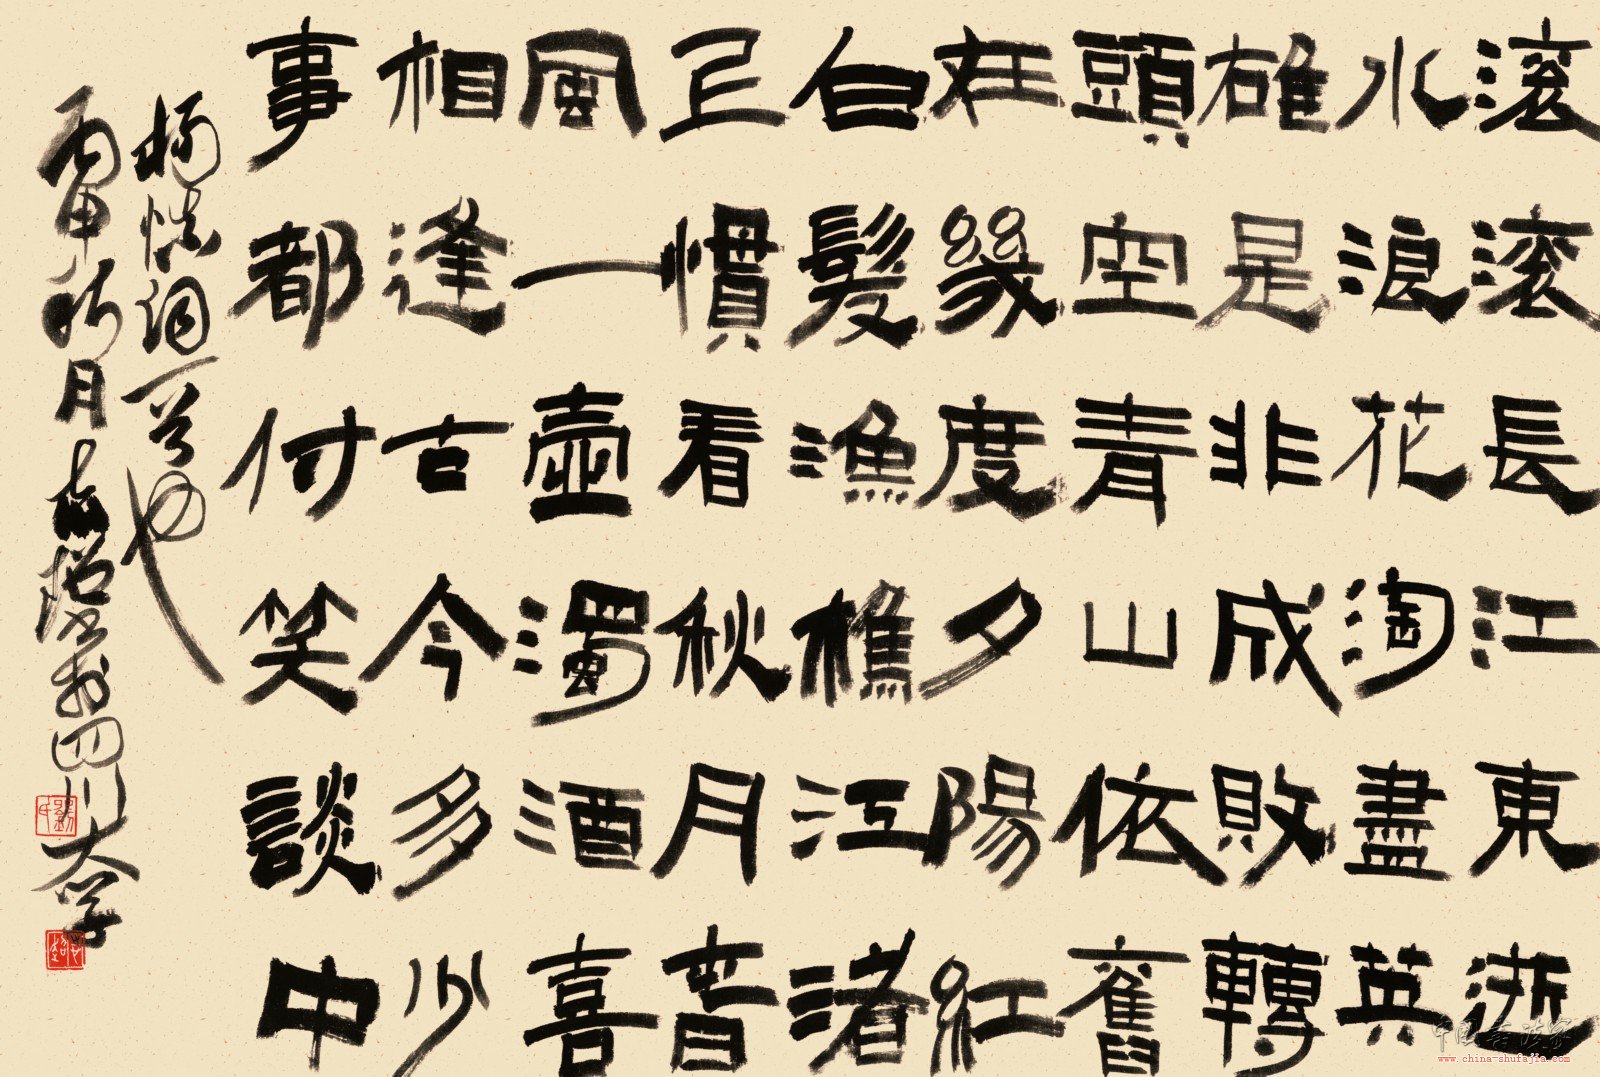 滚滚長江東逝
水浪花淘盡英
雄是非成敗轉
頭空青山依舊
在幾度夕陽紅
白髮漁樵江渚
上慣看秋月春
風一壺濁酒喜
相逢古今多少
事都付笑談中
楊慎词一首也
丙申秋月书於四川大学
www.china-shufajia.com